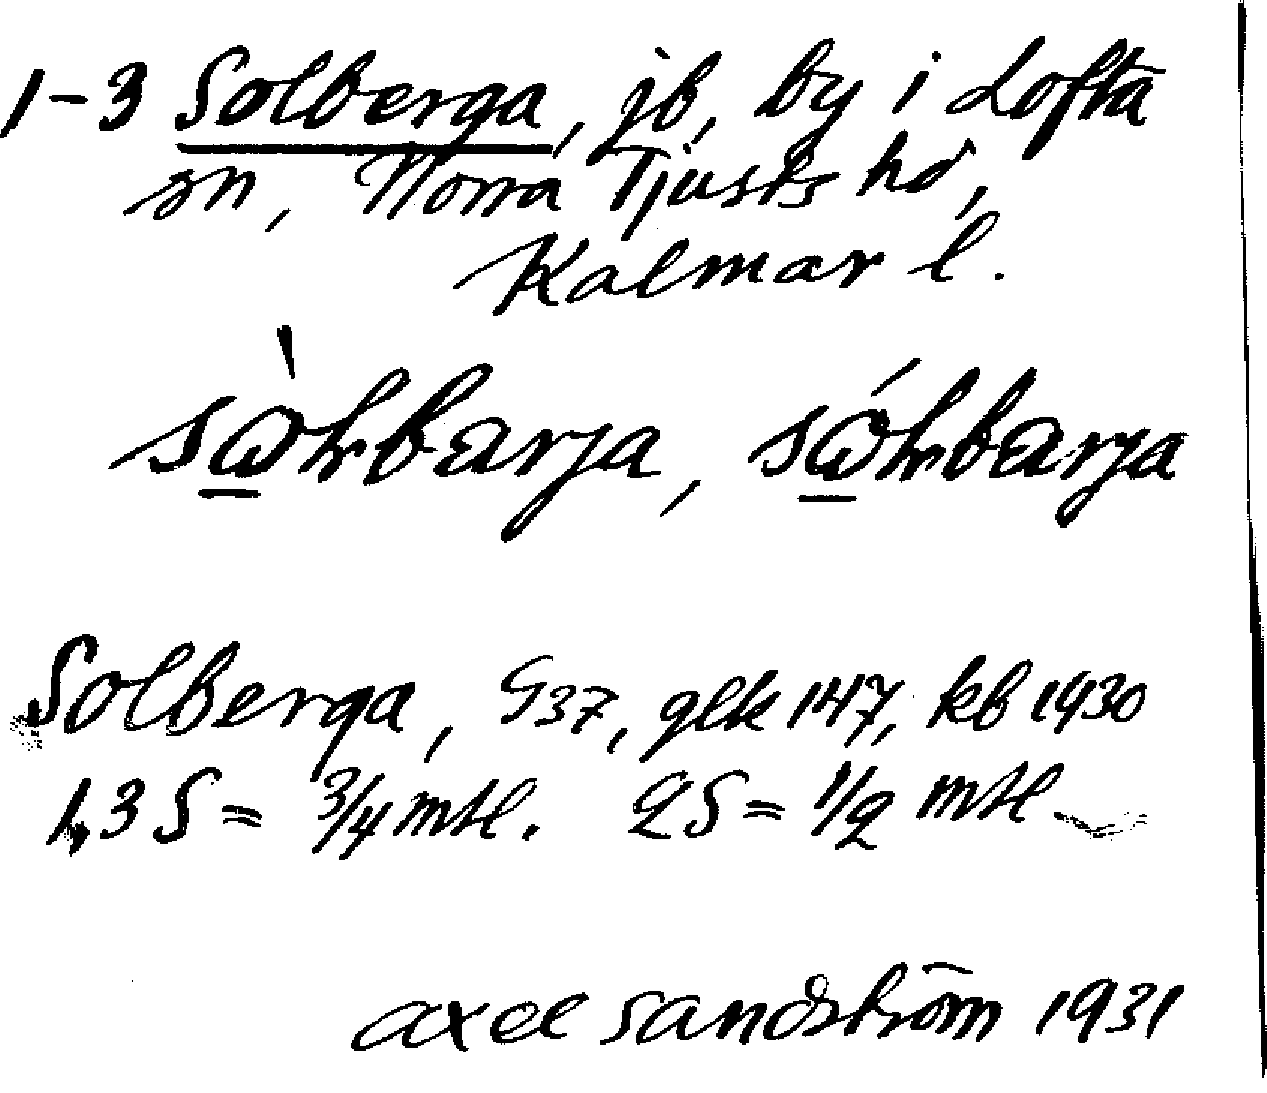 1-3 Solberga, jb, by i Lofta
sn, Norra Tjusts hd,
Kalmar l.
Solberga, G37, glk 147, kb 1930
1,3 S = 3/4 mtl. 2 S = 1/2 mtl
axel sandström 1931